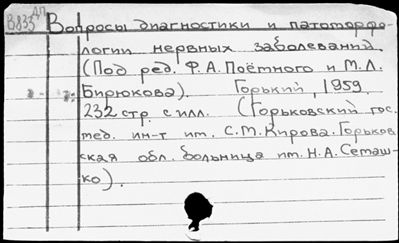 В833 Вопросы диагностики и патоморфо-
логии нервных заболеваний.
(Под ред. Ф.А. Поётного и М.Л.
Бирюкова). Горький, 1959.
232 стр. с илл. (Горьковский гос.
мед. ин-т им. С.М. Кирова. Горьков
ская обл. больница им. Н.А. Семаш-
ко).